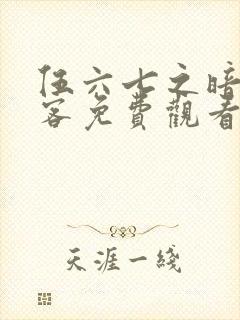 伍六七之暗
客免費觀看
天涯一綫